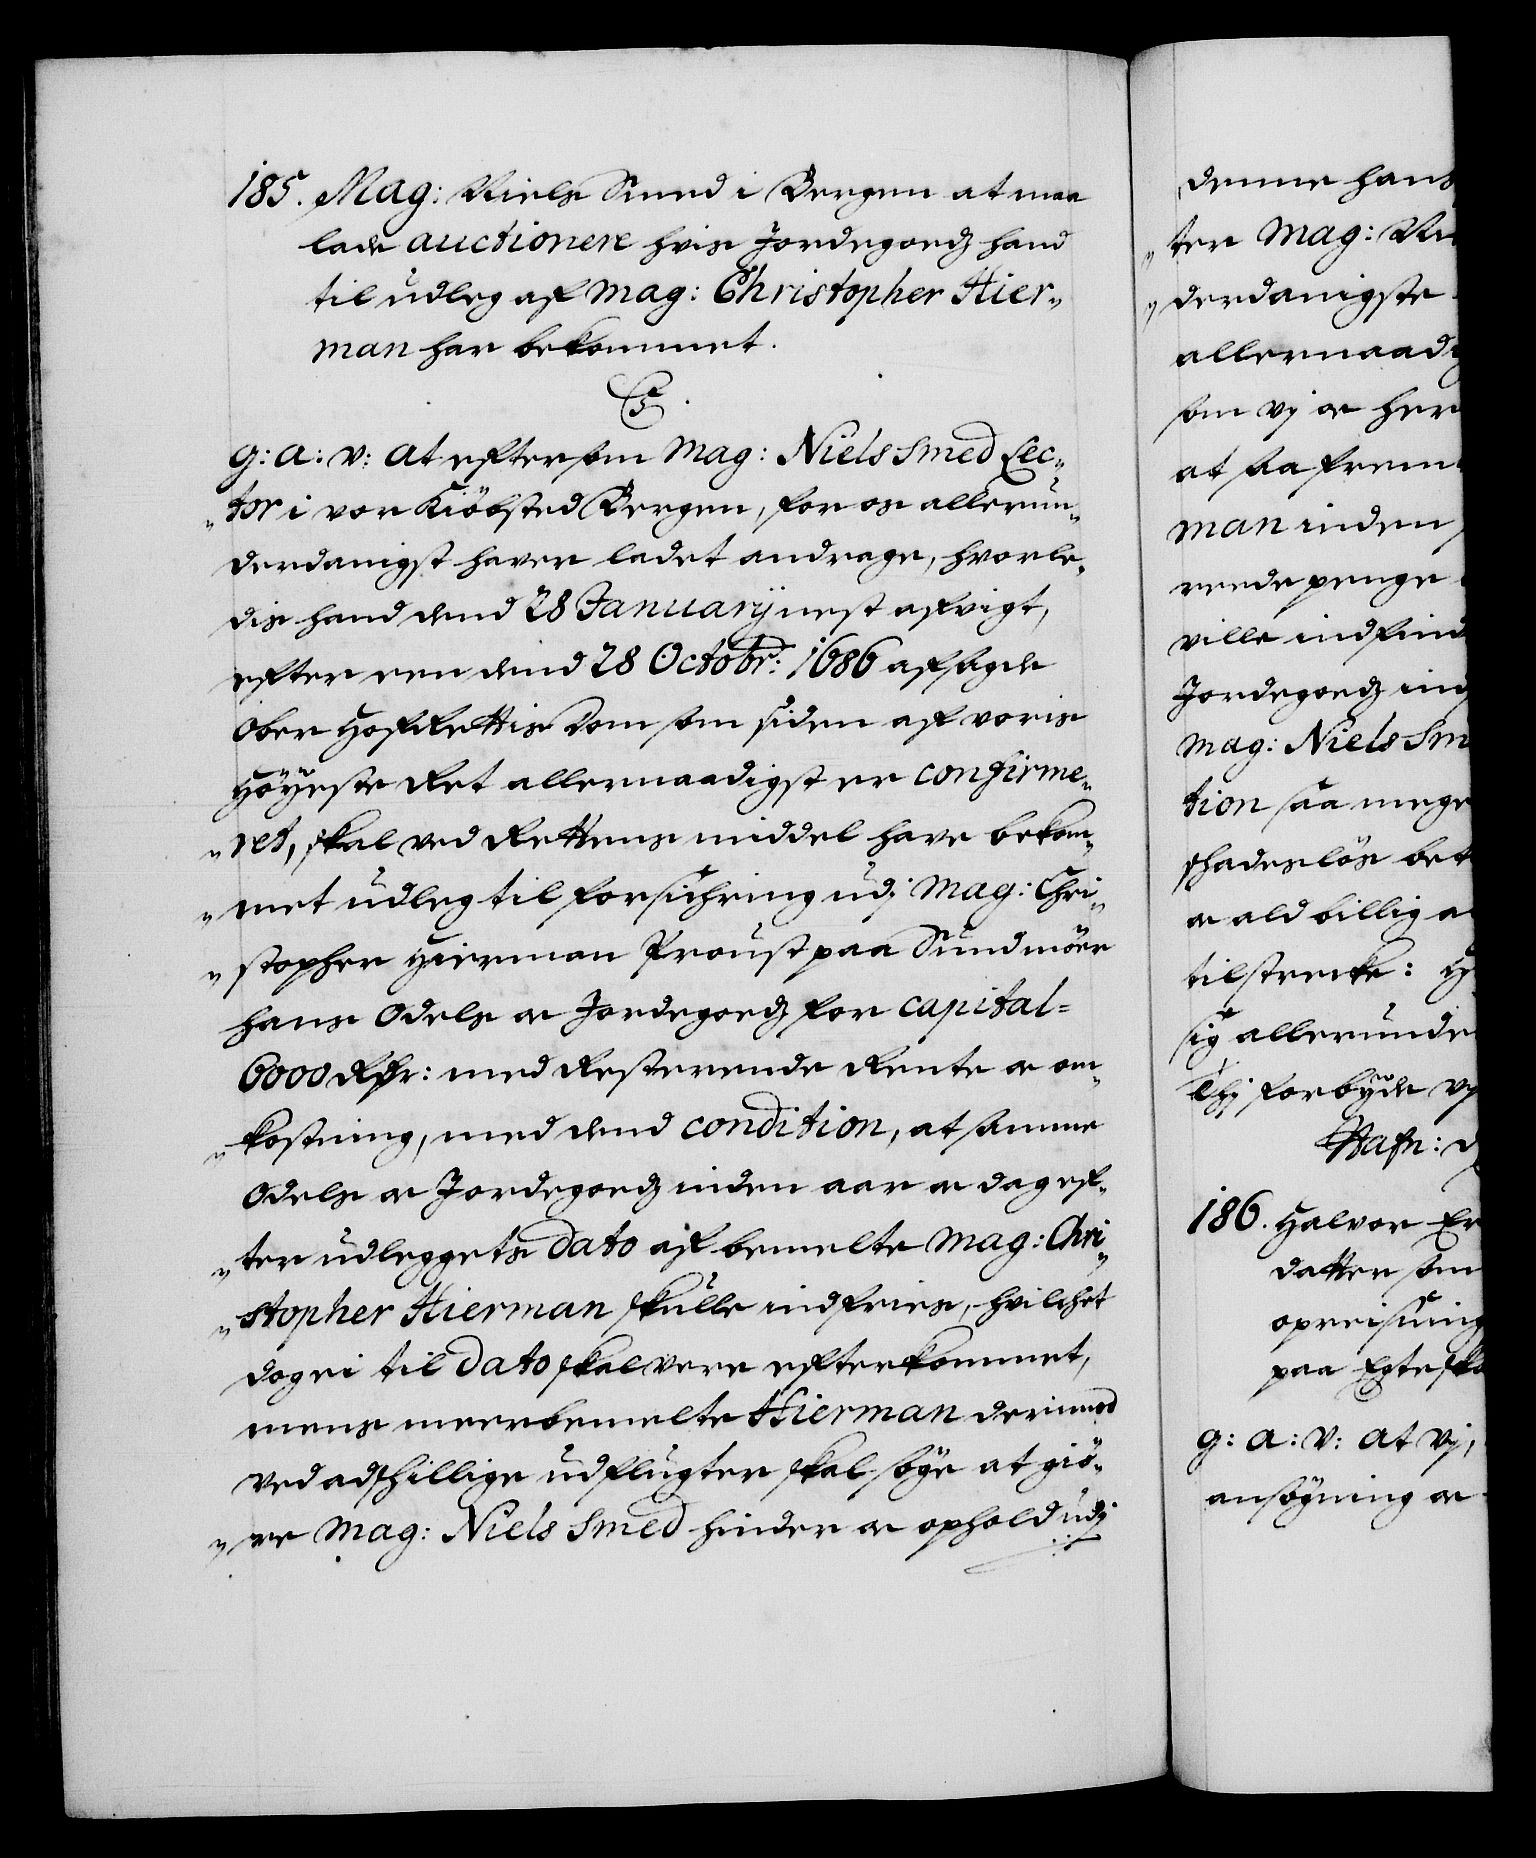 185. Mag: Niels Smed i Bergen at maa
lade auctionere hvis Jordegodz hand
til udleg af Mag: Christopher Hier„
man har bekommet.
C5.
G: A: V: At eftersom Mag: Niels Smed Lec„
„tor i vor Kiöbsted Bergen, for os allerun„
derdanigst haver ladet andrage, hvorle„
dis hand dend 28 Januarij nest afvigt,
efter een dend 28 Octobr: 1686 afsagde
Ober HofRettis Dom som siden af voris
Höyeste Ret allernaadigst er confirme„
„ret, skal ved Rettens middel have bekom„
„met udleg til forsichring udj Mag: Chri„
„stopher Hierman Proust paa Sundmöer
hans Odels oc Jordegodz for capital=
6000 Rdr: med Resterende Rente oc om„
„kostning, med dend condition, at samme
Odels oc Jordegodz inden aar oc dag ef„
„ter udleggets Dato af bemelte Mag: Chri„
„stopher Hierman skulle indfries, hvilchet
dog ei til Dato skal vere efterkommet,
mens meerbemelte Hierman derimod
ved adschillige udflugter skal söge at giö„
„re Mag: Niels Smed hinder oc ophold udj
denne hans
„ter Mag: Ni
„derdanigste
allernaad
som vj oc her
at saafrem
man inden
reede penge
ville indfind
Jordegodz ind
Mag: Niels Sm
tion saa mege
schadeslös bet
oc ald billig
tilstrecke: H
sig allerunde
Thj forbyde vj
Hafn: d
186. Halvor Er
datter som
opreisning
paa Egtesk
G: A: V: At Vj,
ansögning oc